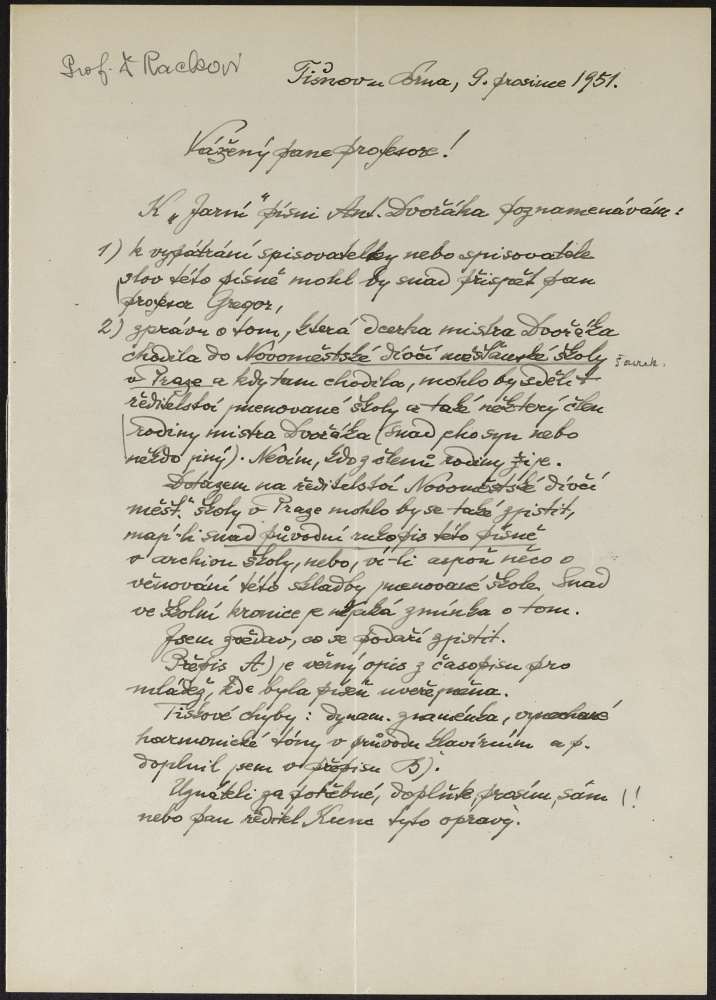 Prof. Rackovi
Tišnov u Brna, 9. prosince 1951.
Vážený pane profesore!
K „Jarní“ písni Ant. Dvořáka poznamenávám:
1) k vypátrání spisovatelky nebo spisovatele
slov této písně mohl by snad přispět pan
profesor Gregor,
2) zprávu o tom, která dcerka mistra Dvořáka
chodila do Novoměstské dívčí měšťanské školy
v Praze a kdy tam chodila, mohlo by sděliti
ředitelství jmenované školy a také některý člen
rodiny mistra Dvořáka (snad jeho syn nebo
někdo jiný). Nevím, kdo z členů rodiny žije.
Dotazem na ředitelství Novoměstské dívčí
měšť. školy v Praze mohlo by se také zjistit,
mají-li snad původní rukopis této písně
v archivu školy, nebo, ví-li aspoň něco o
věnování této skladby jmenované škole. Snad
ve školní kronice je nějaká zmínka o tom.
Jsem zvědav, co se podaří zjistit.
Přepis A) je věrný opis z časopisu pro
mládež, kde byla píseň uveřejněna.
Tiskové chyby: dynam. znaménka, vynechané
harmonické tóny v průvodu klavírním a p.
doplnil jsem v přepisu B).
Uznáteli za potřebné, doplňte, prosím, sám
nebo pan ředitel Kunc tyto opravy.